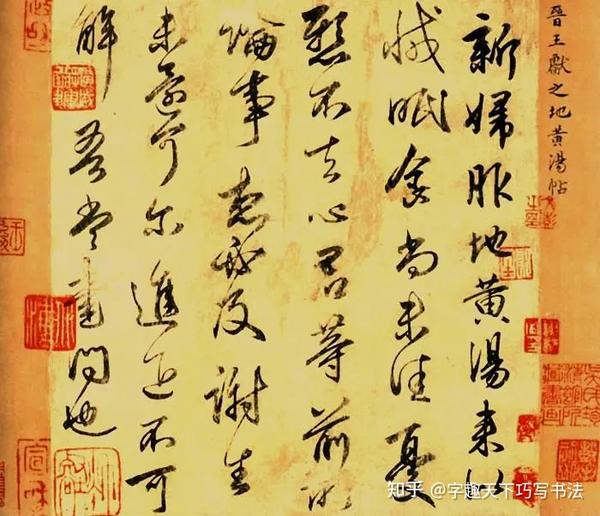 晉王獻之地黃湯帖
新婦服地黃湯來似
減眠食尚未佳憂
懸不去心君等前所
論事想必及謝生
未還可爾進退不可
解吾當書問也
知乎 @字趣天下巧写书法